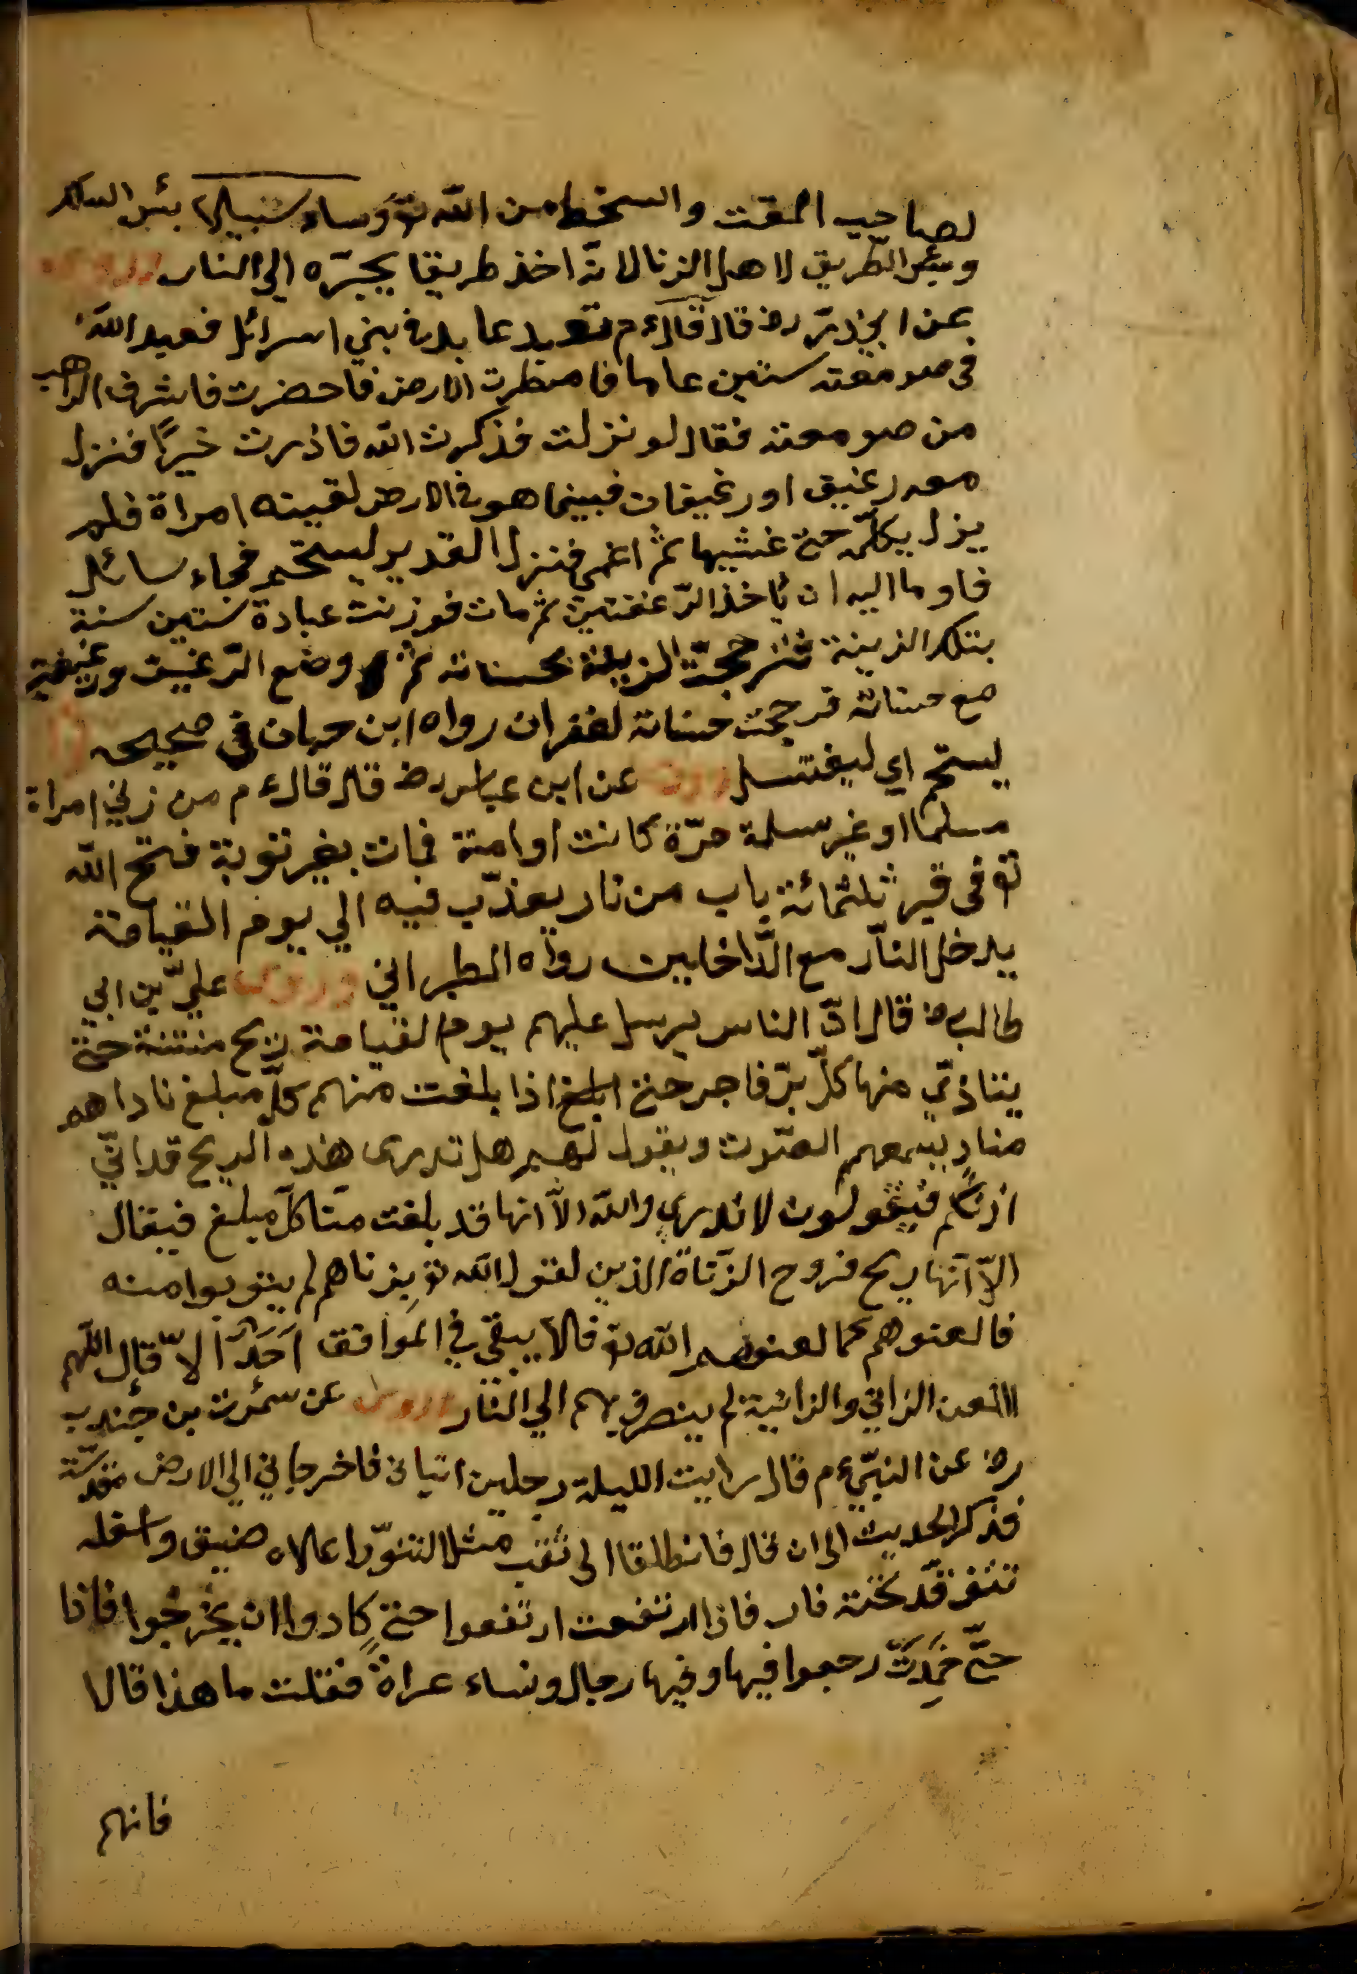 لصاحب المقت والسخط من الله تع وساء سبيلا بئس المسلك
وبئس الطريق لاهل الزنا لانه اخذ طريقا يجره الى النار وروى
عن ابي ذر رض قال قال ءم تعبد عابد من بني اسرائل فعبد الله
في صومعته ستين عاما فامطرت الارض فاحضرت فاشرف الراهب
من صومعته فقال لو نزلت فذكرت الله فاذرت خيرًا فنزل
معه رغيف او رغيفان فبينما هو في الارض لقيته امراة فلم
يزل يكلمه حتى غشيها ثم اغمي فنزل الغدير ليستحم فجاء سائل
فاوما اليه ان ياخذ الرغفتين ثم مات فوزنت عبادة ستين سنة
بتلك الزينة فرجحت الزينة بحسناته ثم وضع الرغيف ورغيفين
مع حسناته فرجحت حسناته لغفران رواه ابن حبان في صحيحه
ليستحم اي ليغتسل وروى عن ابن عباس رض قال قال ءم من زني امراة
مسلما او غير مسلمة حرة كانت او امتة فمات بغير توبة فتح الله
تع في قبر ثلثمائة باب من نار يعذب فيه الي يوم القيامة
يدخل النار مع الداخلين رواه الطبراني وروى علي بن ابي
طالب رض قال ان الناس يرسل عليهم يوم القيامة ريح منتنة حتى
يتاذي منها كل بر فاجر حتى ابلغ اذا بلغت منهم كل مبلغ ناداهم
مناد يسمعهم الصوت ويقول لهم هل تدرى هذه الريح قد اتي
اذنكم فيقولون لا ندري والله الا انها قد بلغت منا كل مبلغ فيقال
الا انها ريح فروج الزناة الذين لقول الله تع بزناهم لم يتوبوا منه
فالعنوهم كما لعنوهم الله تع فلا يبقي في المواقف احدًا الا قال اللهم
العن الزاني والزانية ثم ينصرف بهم الي النار وروى عن سمرت بن جندب
رض عن النبي ءم قال رايت الليلة رجلين اتياني فاخرجاني الي الارض مقدسة
فذكر الحديث الى ان قال فانطلقا الى ثقب مثل التنور اعلاه ضيق واسفله
تتوقد تحته نار فاذا ارتفعت ارتفعوا حتى كادوا ان يخرجوا فاذا
حتى خمدت رجعوا فيها وفيها رجال ونساء عراة فقلت ما هذا قالا
فانهم